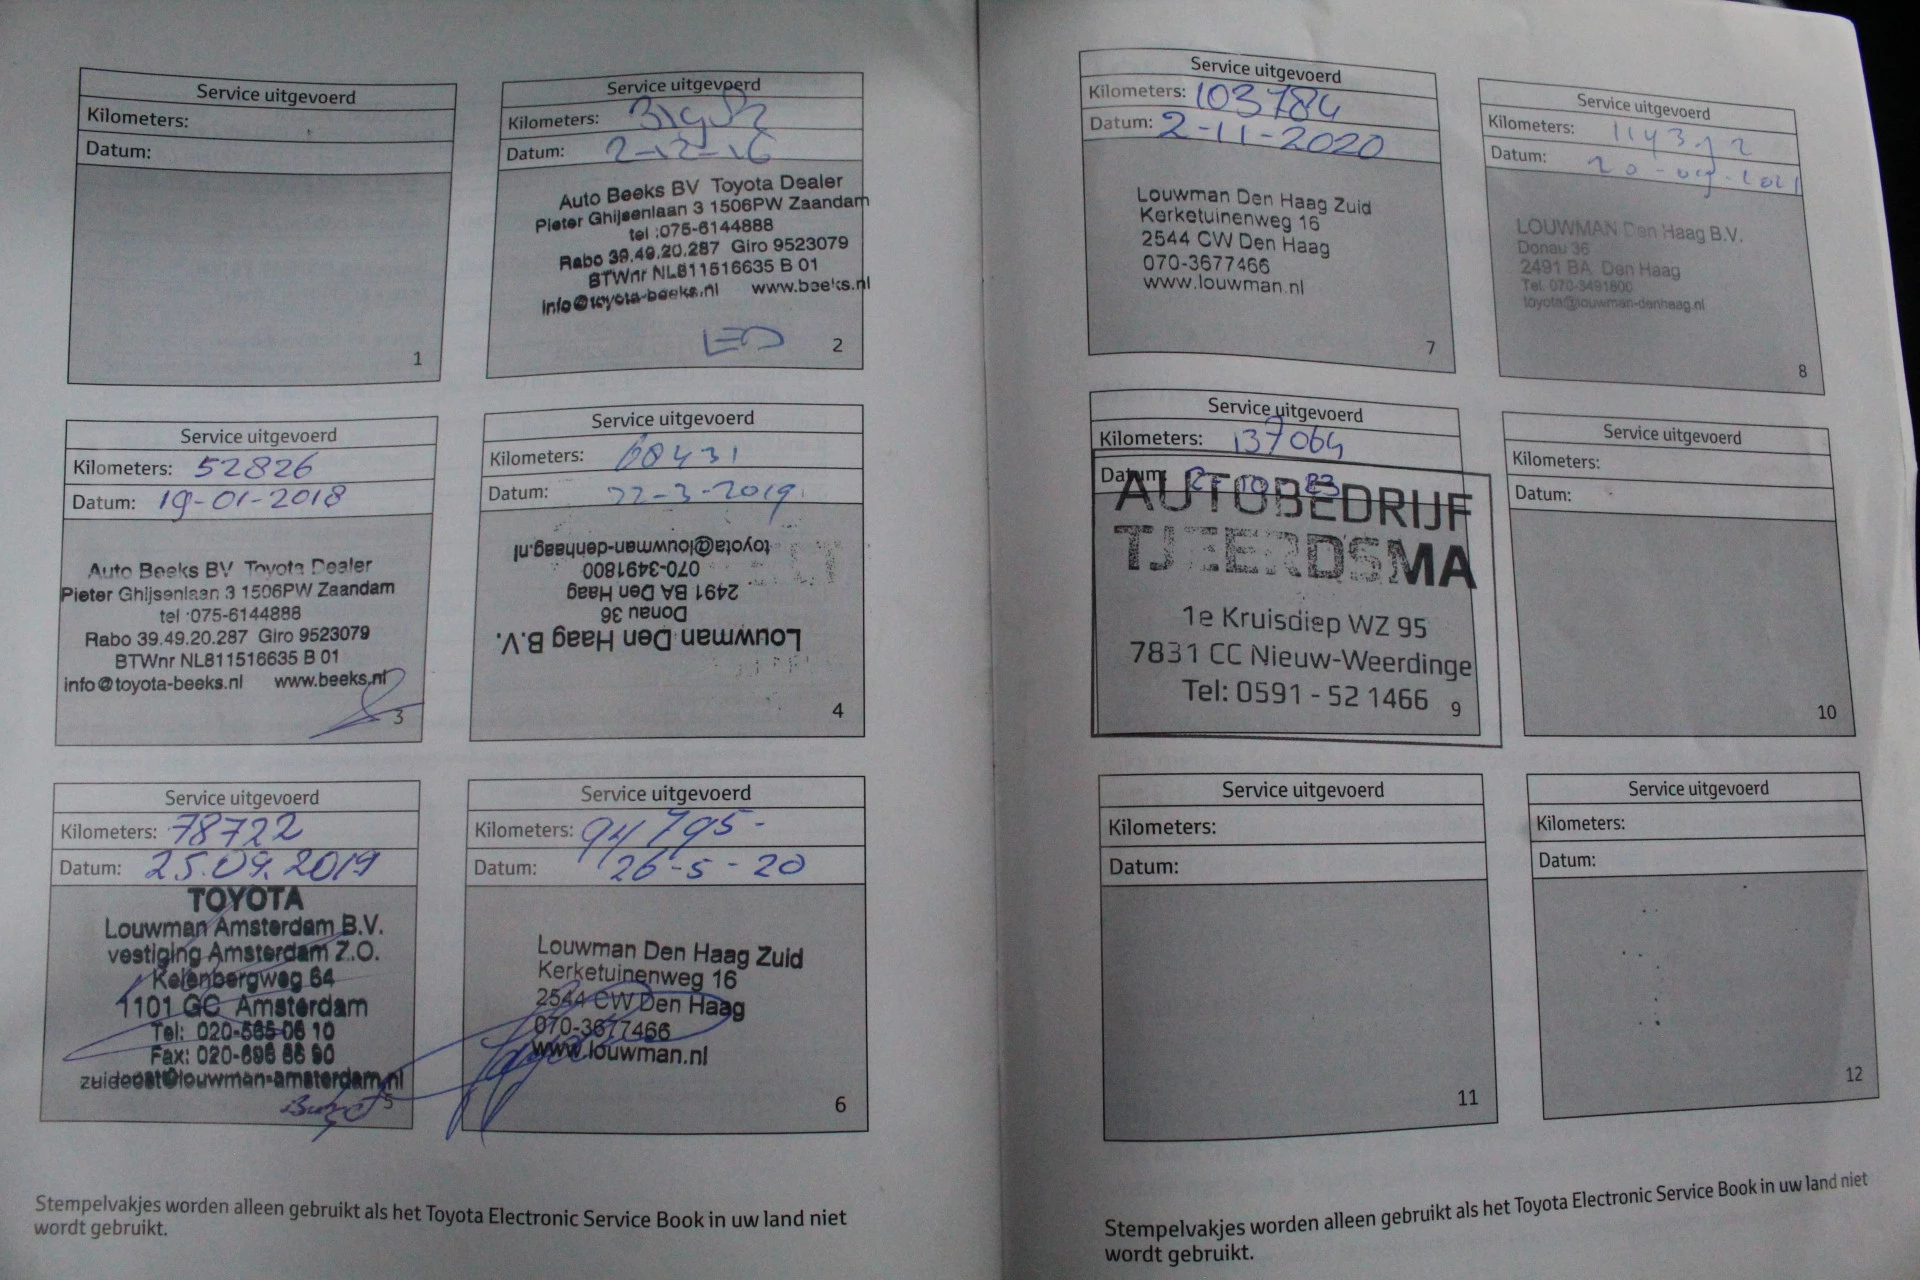 Service uitgevoerd
Kilometers:
Datum:
1
Service uitgevoerd
Kilometers:
Datum: 2-12-16
Auto Beeks BV Toyota Dealer
Pieter Ghijsenlaan 3 1506PW Zaandam
tel :075-6144888
Rabo 39.49.20.287 Giro 9523079
BTWnr NL811516635 B 01
info@toyota-beeks.nl www.beeks.nl
2
Service uitgevoerd
Kilometers: 52826
Datum: 19-01-2018
Auto Beeks BV Toyota Dealer
Pieter Ghijsenlaan 3 1506PW Zaandam
tel :075-6144888
Rabo 39.49.20.287 Giro 9523079
BTWnr NL811516635 B 01
info@toyota-beeks.nl www.beeks.nl
3
Service uitgevoerd
Kilometers: 68431
Datum: 22-3-2019
Louwman Den Haag B.V.
Donau 36
2491 BA Den Haag
070-3491800
toyota@louwman-denhaag.nl
4
Service uitgevoerd
Kilometers: 78722
Datum: 25.09.2019
TOYOTA
Louwman Amsterdam B.V.
vestiging Amsterdam Z.O.
Kelenbergweg 64
1101 GC Amsterdam
Tel: 020-565 06 10
Fax: 020-696 66 90
zuidoost@louwman-amsterdam.nl
5
Service uitgevoerd
Kilometers: 94795-
Datum: 26-5-20
Louwman Den Haag Zuid
Kerketuinenweg 16
2544 CW Den Haag
070-3677466
www.louwman.nl
6
Stempelvakjes worden alleen gebruikt als het Toyota Electronic Service Book in uw land niet
wordt gebruikt.
Service uitgevoerd
Kilometers: 103784
Datum: 2-11-2020
Louwman Den Haag Zuid
Kerketuinenweg 16
2544 CW Den Haag
070-3677466
www.louwman.nl
7
Service uitgevoerd
Kilometers:
Datum:
LOUWMAN Den Haag B.V.
Donau 36
2491 BA Den Haag
Tel. 070-3491800
toyota@louwman-denhaag.nl
8
Service uitgevoerd
Kilometers: 137064
Datum:
AUTOBEDRIJF
TJEERDSMA
1e Kruisdiep WZ 95
7831 CC Nieuw-Weerdinge
Tel: 0591 - 52 1466
9
Service uitgevoerd
Kilometers:
Datum:
10
Service uitgevoerd
Kilometers:
Datum:
11
Service uitgevoerd
Kilometers:
Datum:
12
Stempelvakjes worden alleen gebruikt als het Toyota Electronic Service Book in uw land niet
wordt gebruikt.